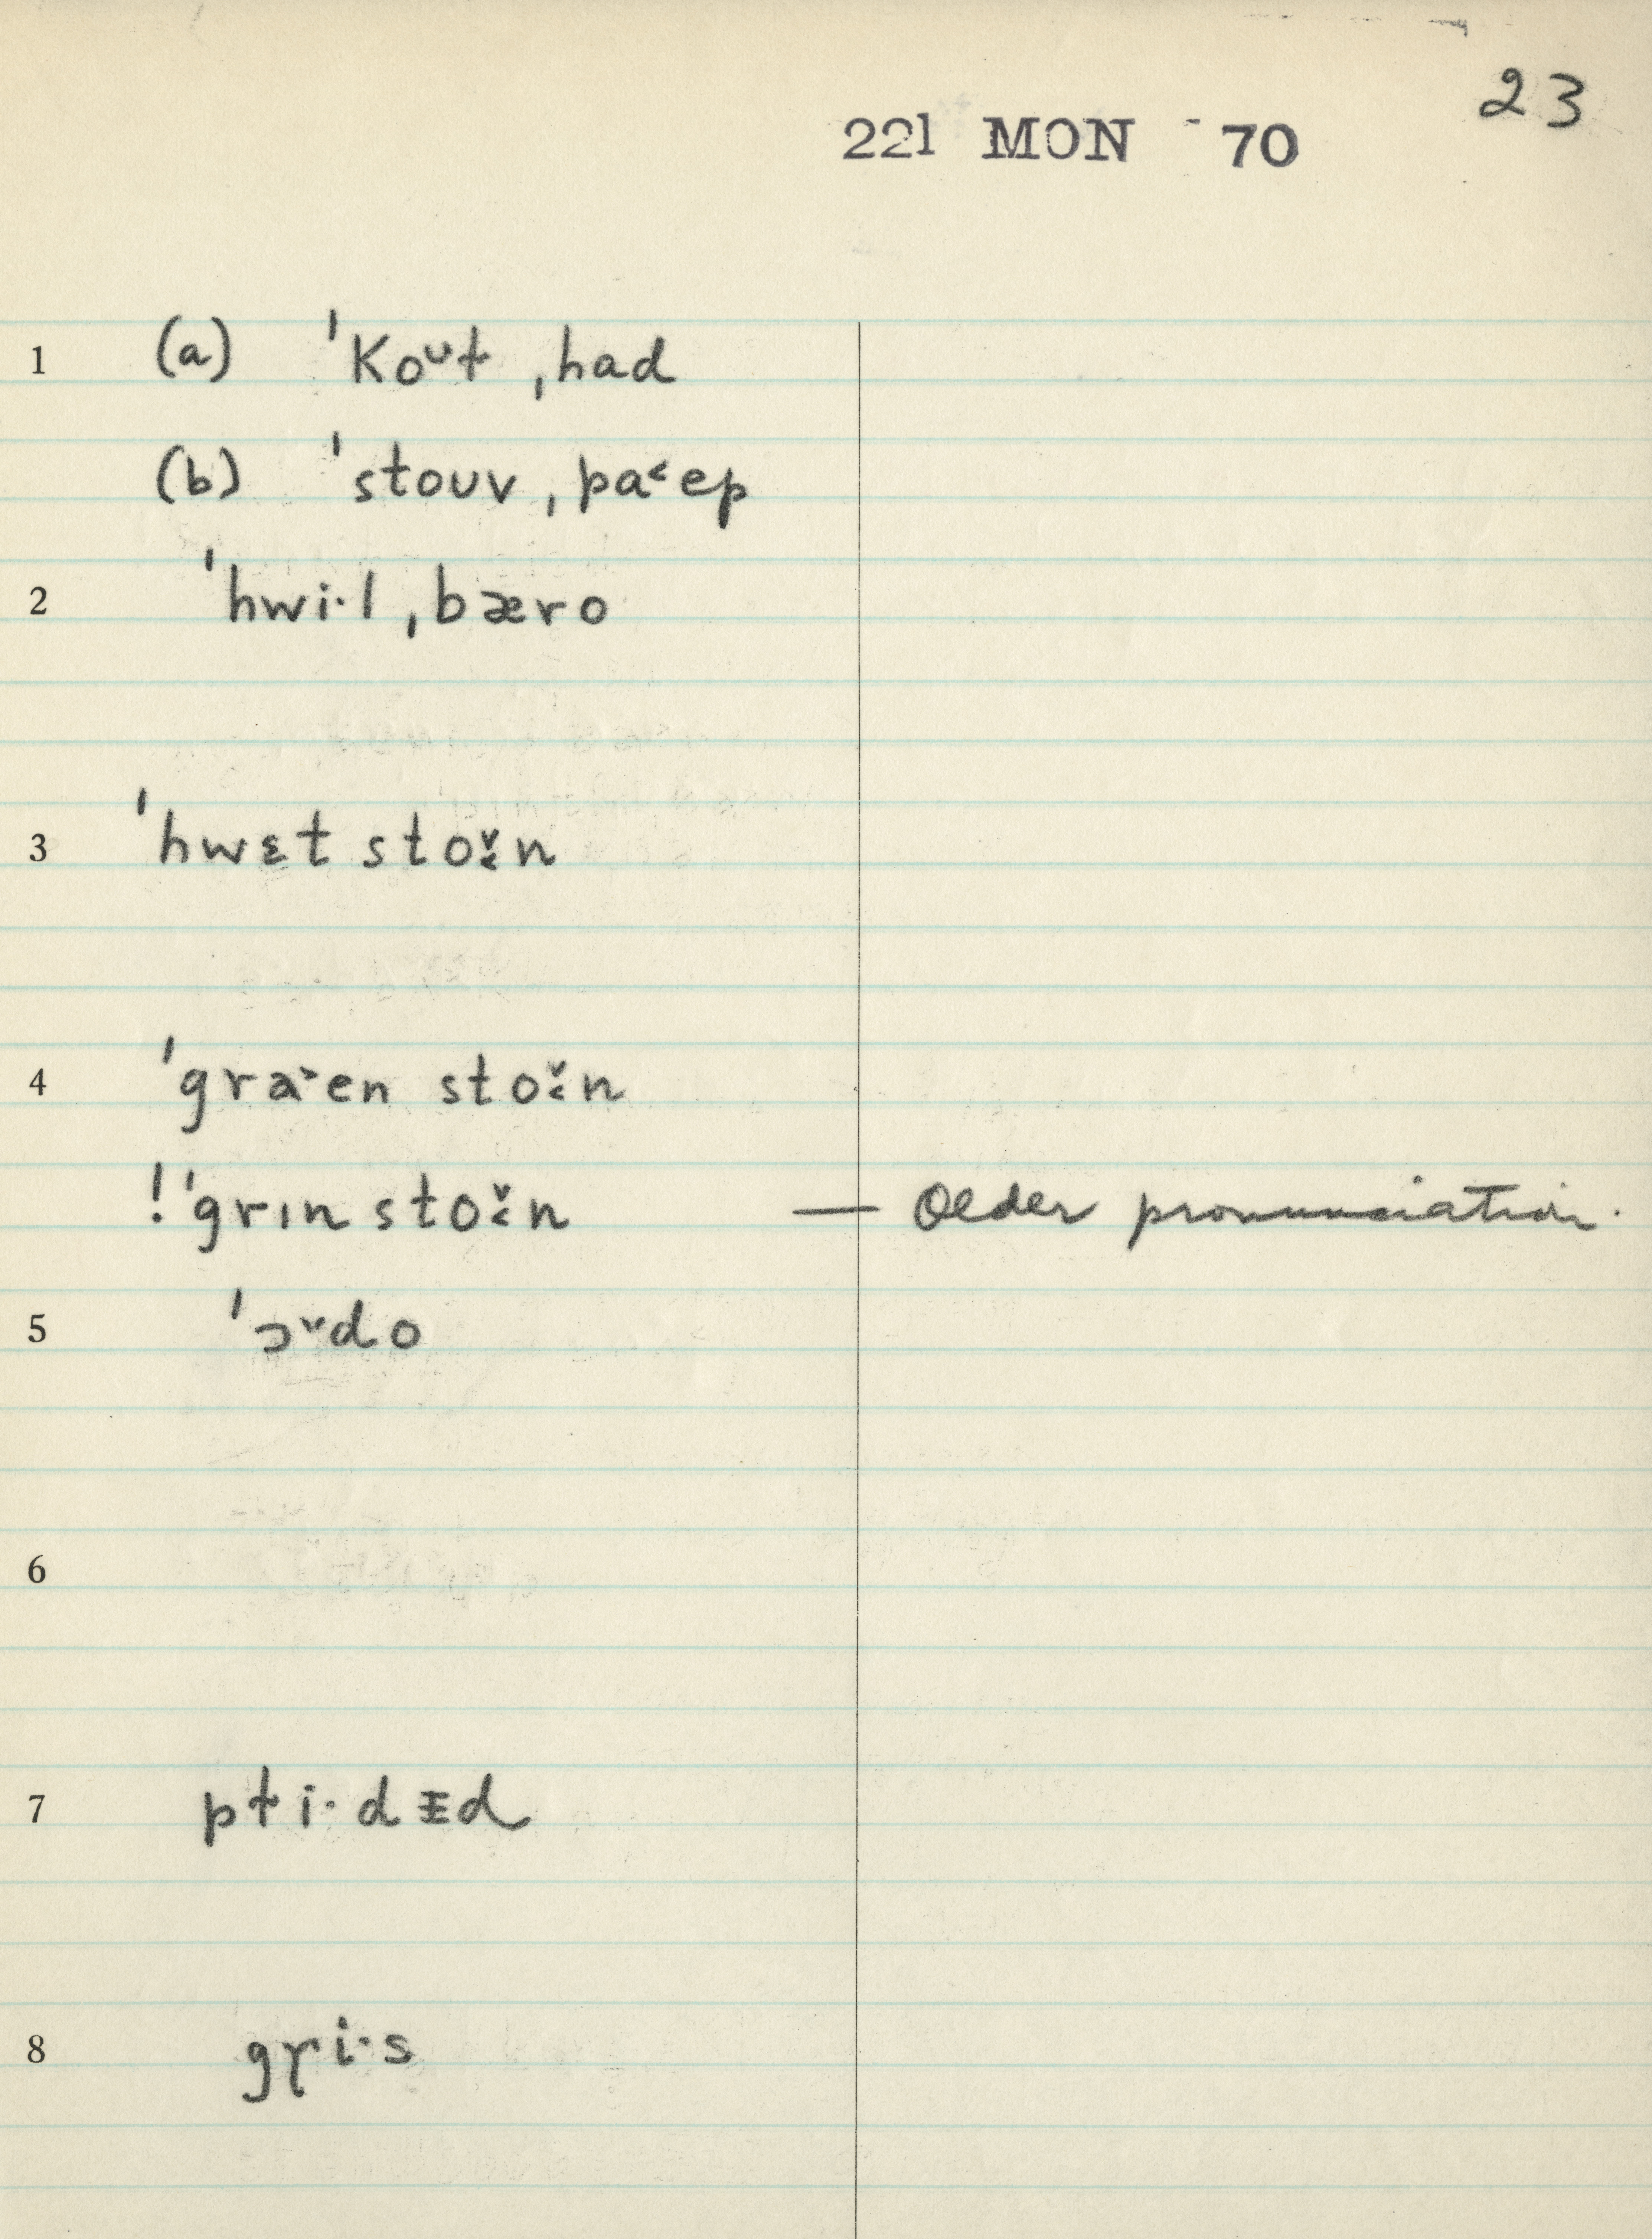 23
221 MON - 70
1 (a) ˈkoᶷɫ ˌhad
(b) ˈstoʊv ˌpa˂ep
2 ˈhwi·l ˌbæro
3 ˈhwɛt stoʊ̌n
4 ˈgra˃en stoʊ̌n
!ˈgrın stoʊ̌n — Older pronunciation.
5 ˈɔᵛdo
6
7 pɫi·dɪ̵d
8 gɼi·s